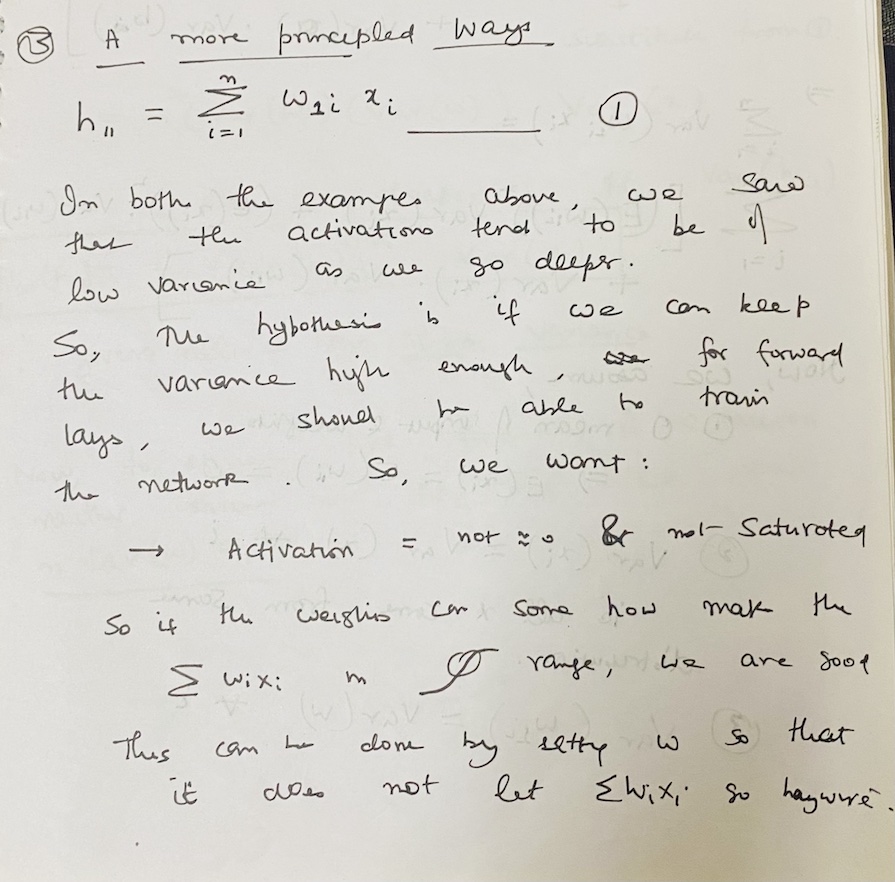 ③ A more principled Ways
h₁₁ = Σ_{i=1}^{n} w₁ᵢ xᵢ ______ ①
In both the exampes above, we saw
that the activations tend to be of
low variance as we go deeper.
So, the hypothesis is if we can keep
the variance high enough, for forward
lays, we should be able to train
the network. So, we want:
→ Activation = not ≈ 0 & not Saturated
So if the weights can some how make the
Σ wᵢxᵢ in range, we are good
This can be done by setty w so that
it does not let Σwᵢxᵢ go haywire.